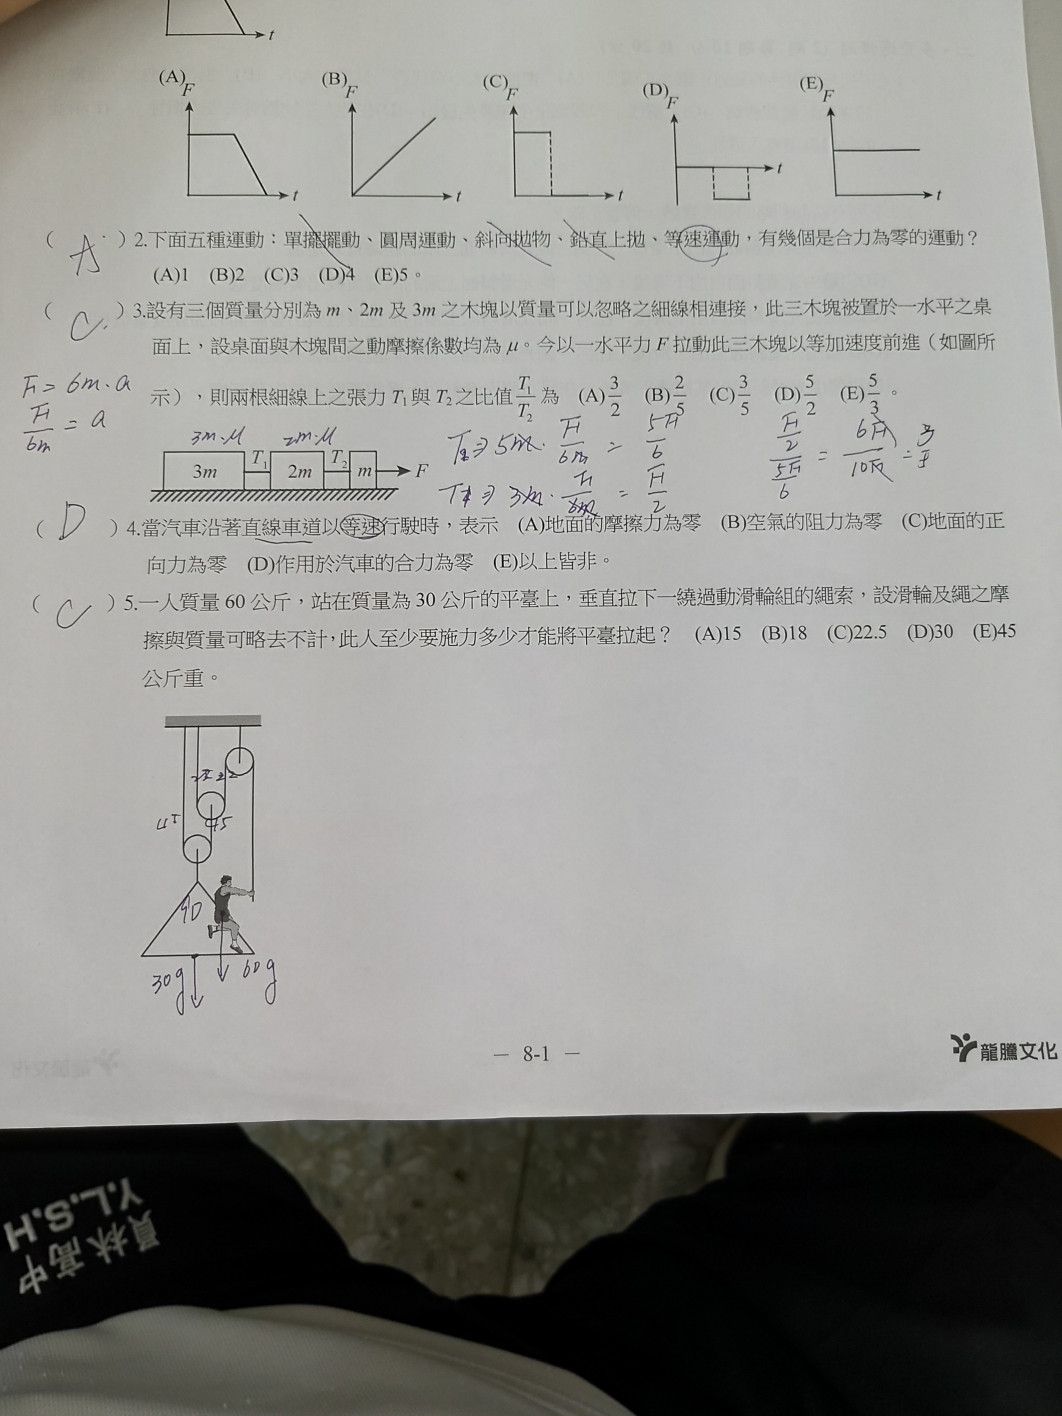 t
(A) (B) (C) (D) (E)
F F F F F
t t t t t
( A )2.下面五種運動：單擺擺動、圓周運動、斜向拋物、鉛直上拋、等速運動，有幾個是合力為零的運動？
(A)1 (B)2 (C)3 (D)4 (E)5。
( C )3.設有三個質量分別為 m、2m 及 3m 之木塊以質量可以忽略之細線相連接，此三木塊被置於一水平之桌
面上，設桌面與木塊間之動摩擦係數均為 μ。今以一水平力 F 拉動此三木塊以等加速度前進（如圖所
示），則兩根細線上之張力 T₁ 與 T₂ 之比值 T₁/T₂ 為 (A) 3/2 (B) 2/5 (C) 3/5 (D) 5/2 (E) 5/3 。
F = 6m·a
F/6m = a
3m·μ 2m·μ
3m T₁ 2m T₂ m F
5m· F/6m = 5F/6
3m· F/6m = F/2
F/2 / 5F/6 = 6F/10F = 3/5
( D )4.當汽車沿著直線車道以等速行駛時，表示 (A)地面的摩擦力為零 (B)空氣的阻力為零 (C)地面的正
向力為零 (D)作用於汽車的合力為零 (E)以上皆非。
( C )5.一人質量 60 公斤，站在質量為 30 公斤的平臺上，垂直拉下一繞過動滑輪組的繩索，設滑輪及繩之摩
擦與質量可略去不計，此人至少要施力多少才能將平臺拉起？ (A)15 (B)18 (C)22.5 (D)30 (E)45
公斤重。
45
90
30g 60g
— 8-1 —
龍騰文化
Y.L.S.H
員林高中